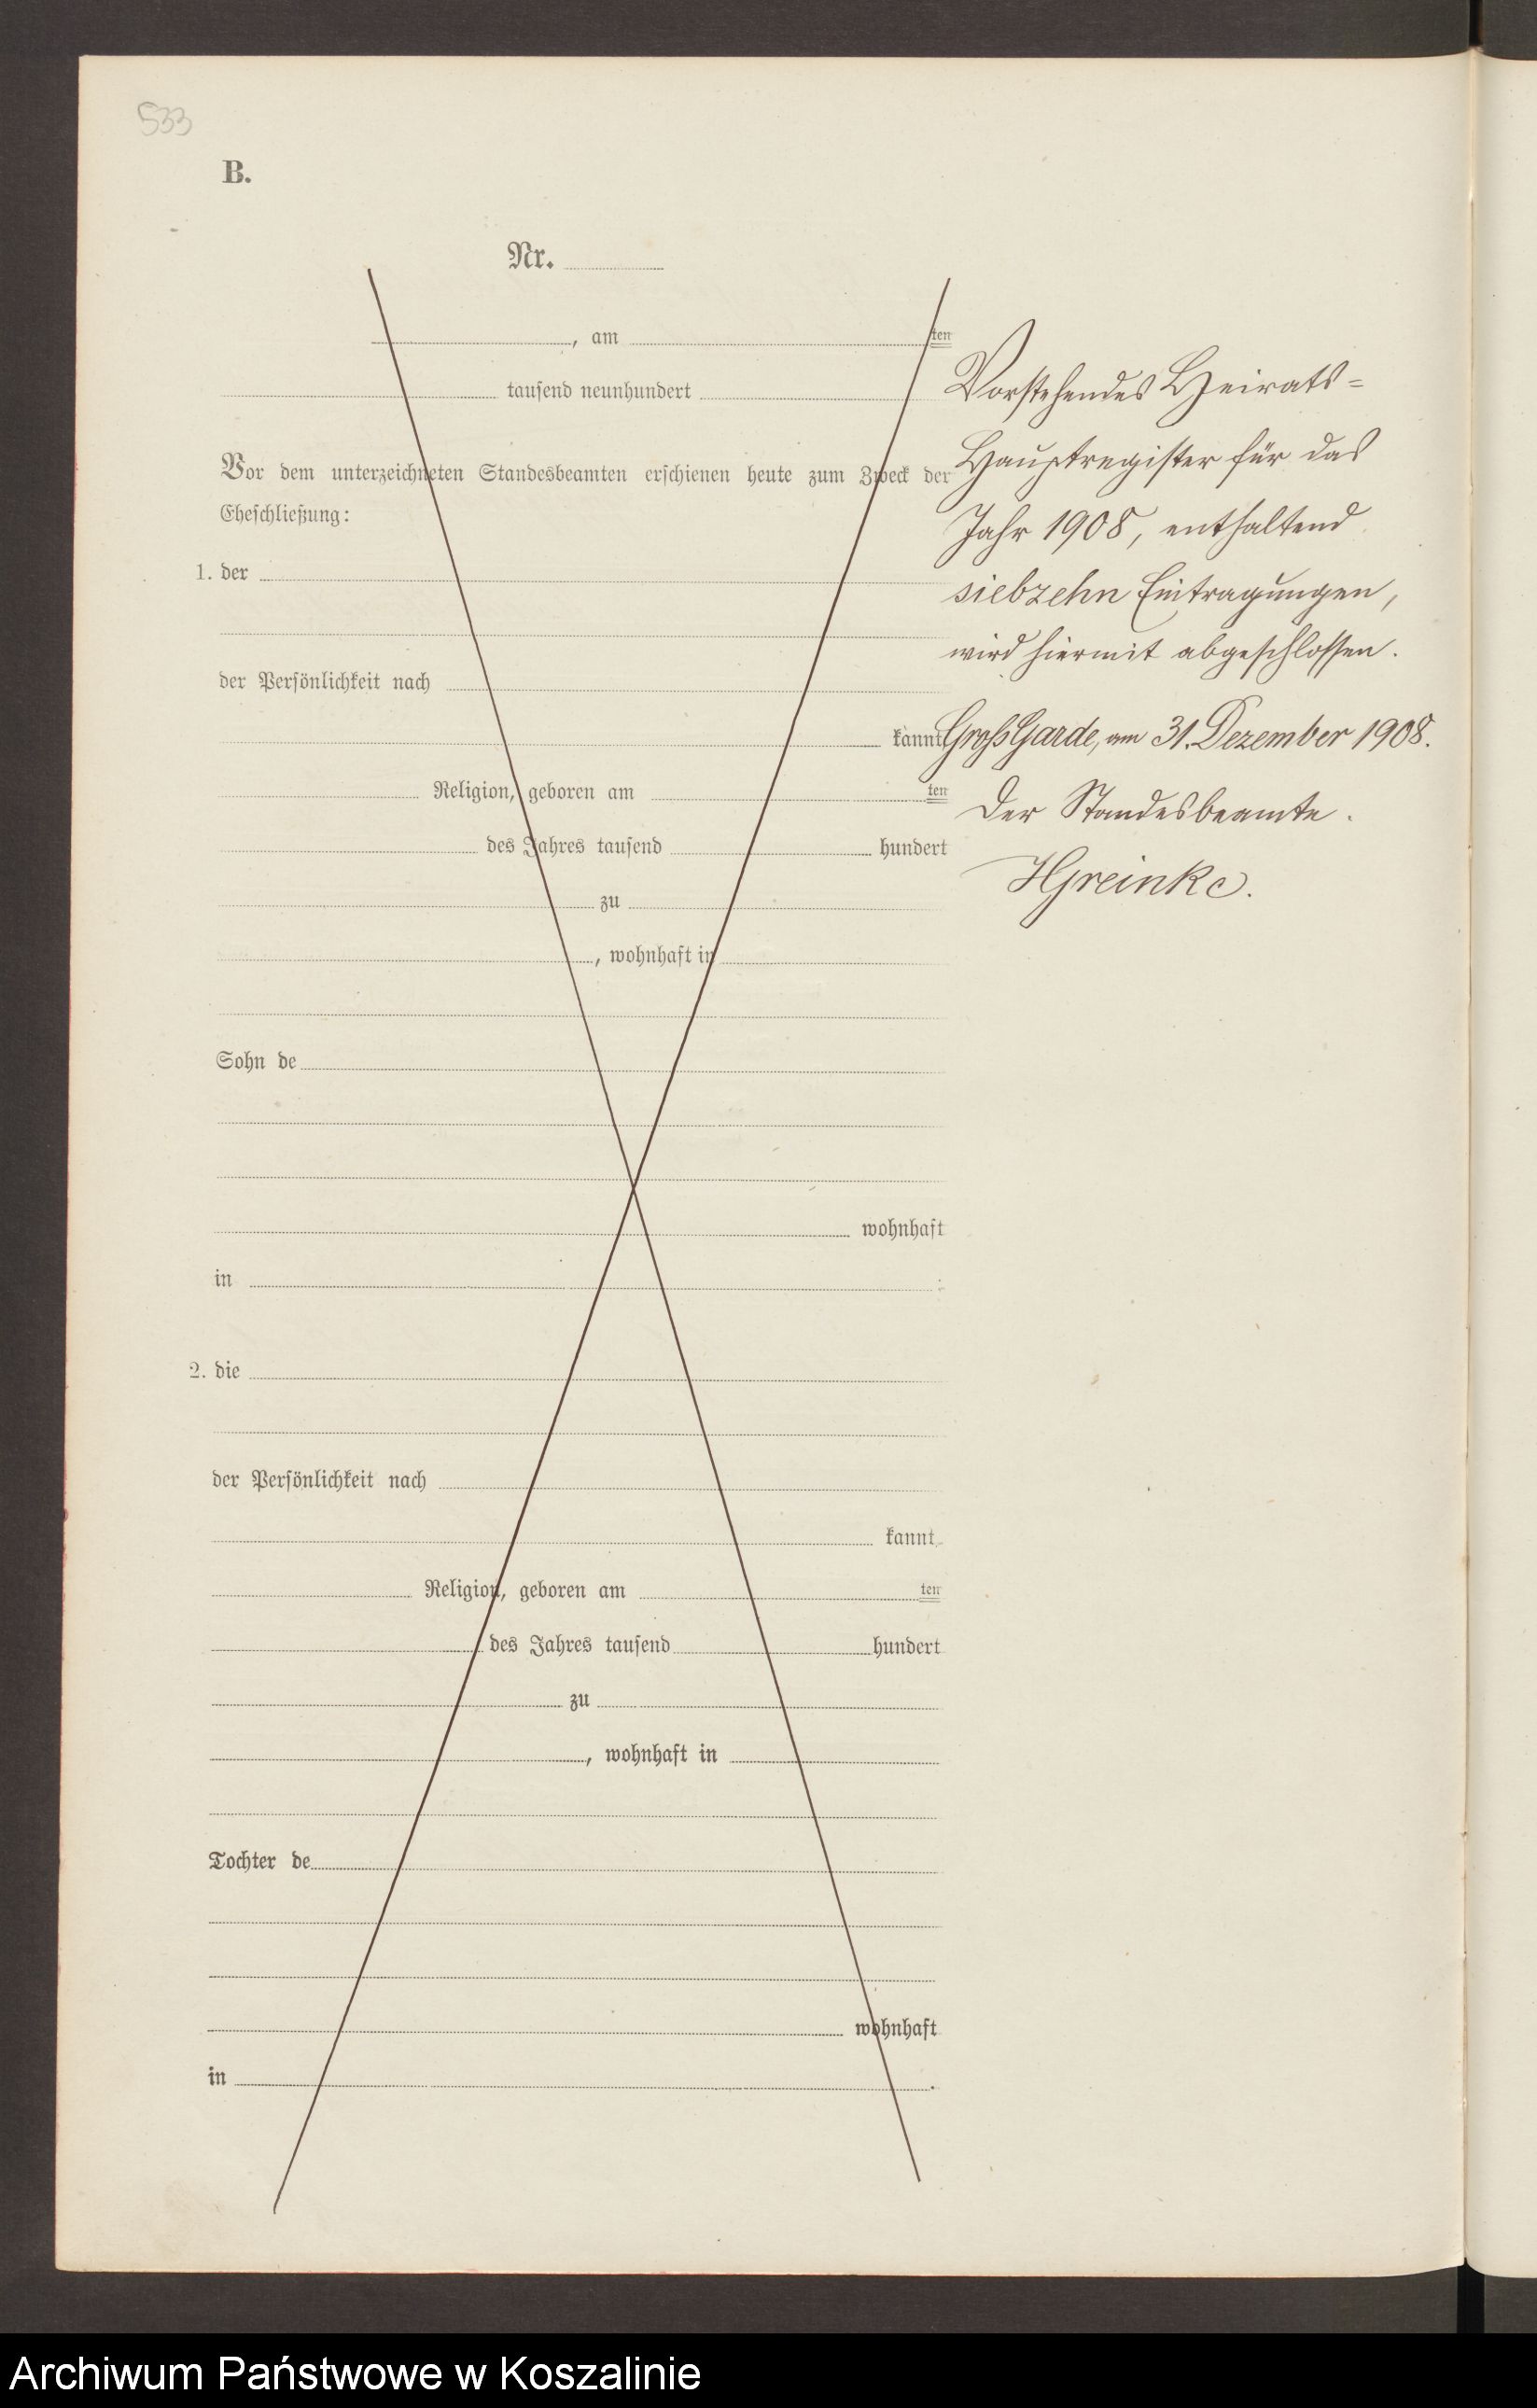 533
B.
Nr.
, am ten
tausend neunhundert
Vor dem unterzeichneten Standesbeamten erschienen heute zum Zweck der
Eheschließung:
1. der
der Persönlichkeit nach
kannt
Religion, geboren am ten
des Jahres tausend hundert
zu
, wohnhaft in
Sohn de
wohnhaft
in
2. die
der Persönlichkeit nach
kannt,
Religion, geboren am ten
des Jahres tausend hundert
zu
, wohnhaft in
Tochter de
wohnhaft
in .
Vorstehendes Heirats=
Hauptregister für das
Jahr 1908, enthaltend
siebzehn Eintragungen,
wird hiermit abgeschlossen.
Groß Garde, am 31. Dezember 1908.
Der Standesbeamte.
Archiwum Państwowe w Koszalinie